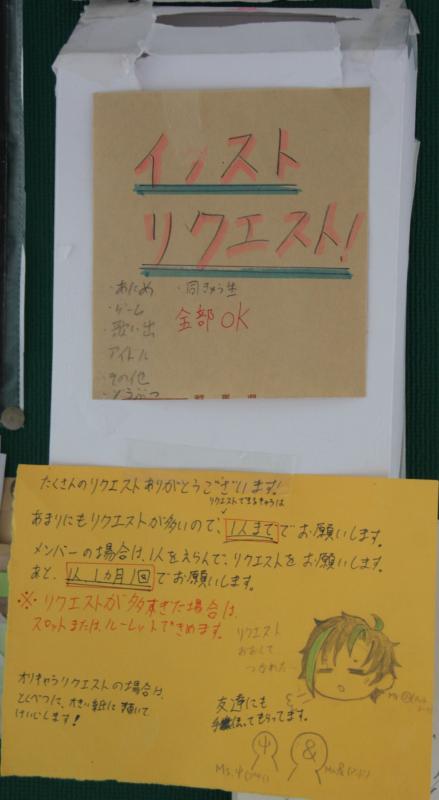 イラスト
リクエスト!
・あにめ
・ゲーム
・歌い出
アイドル
・その他
・どうぶつ
・同きゅう生
全部OK
たくさんのリクエストありがとうございます!
リクエストできるきゅうは
あまりにもリクエストが多いので、1人まででお願いします。
メンバーの場合は、1人をえらんで、リクエストをお願いします。
あと、1人、1カ月1回でお願いします。
※リクエストが多すぎた場合は、
スロットまたは、ルーレットできめます。
リクエスト
おおくて
つかれた…
オリキャラリクエストの場合は、
とくべつに、大きい紙に描いて
けいじします!
友達にも
手伝ってもらってます。
ψ
&